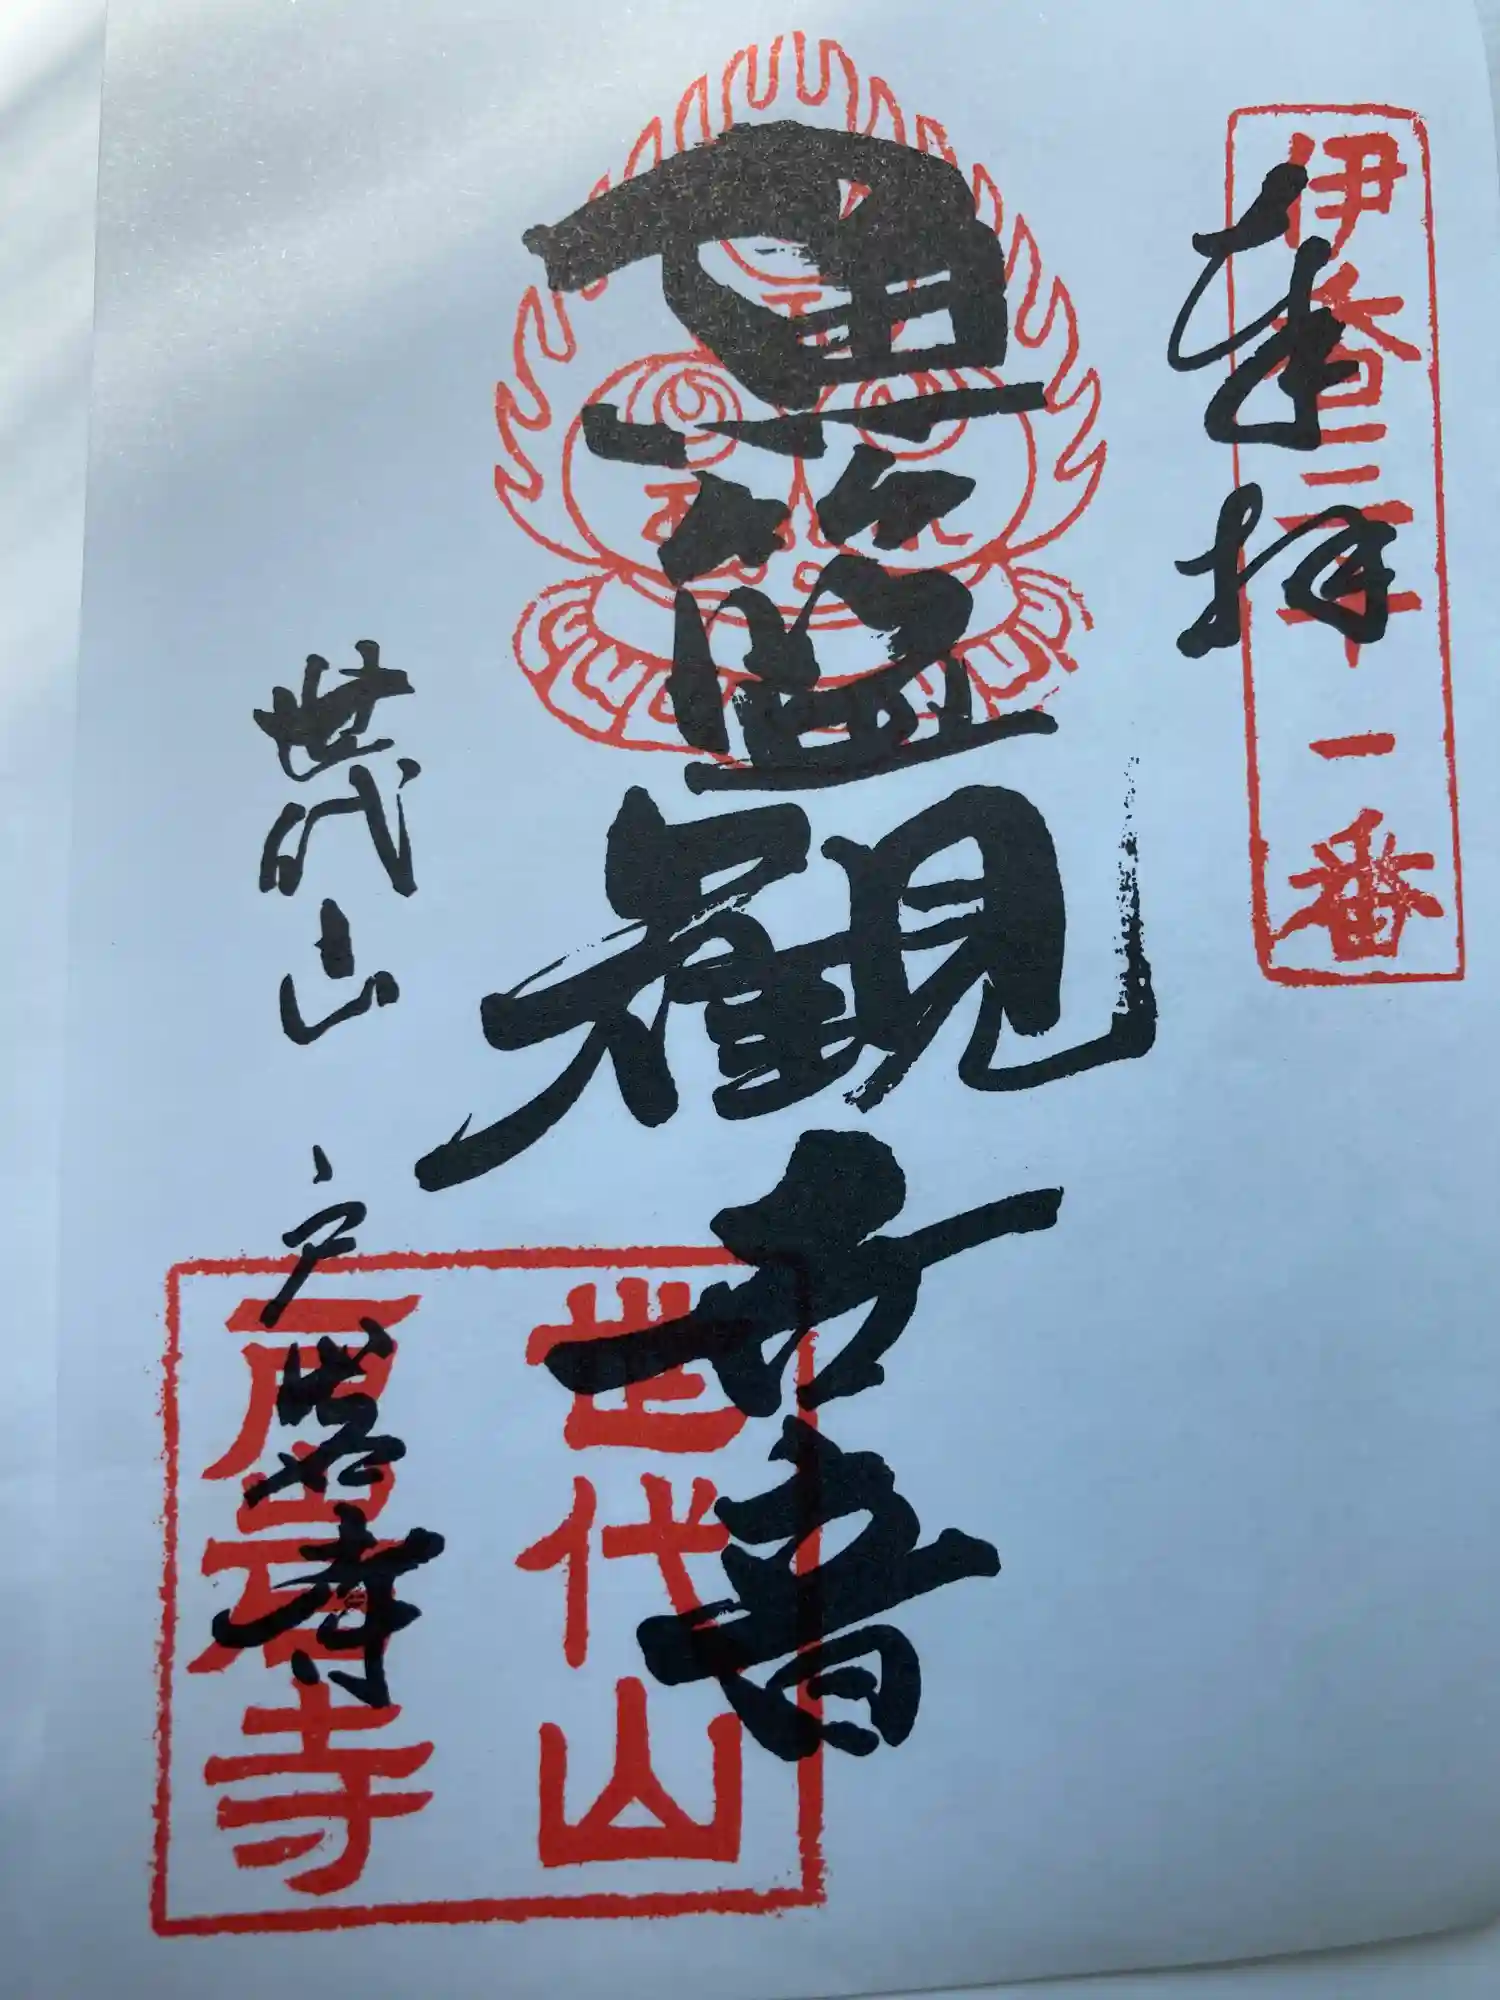 伊香三十一番
奉拝
魚籃観世音
世代山 戸岩寺
世代山
戸岩寺